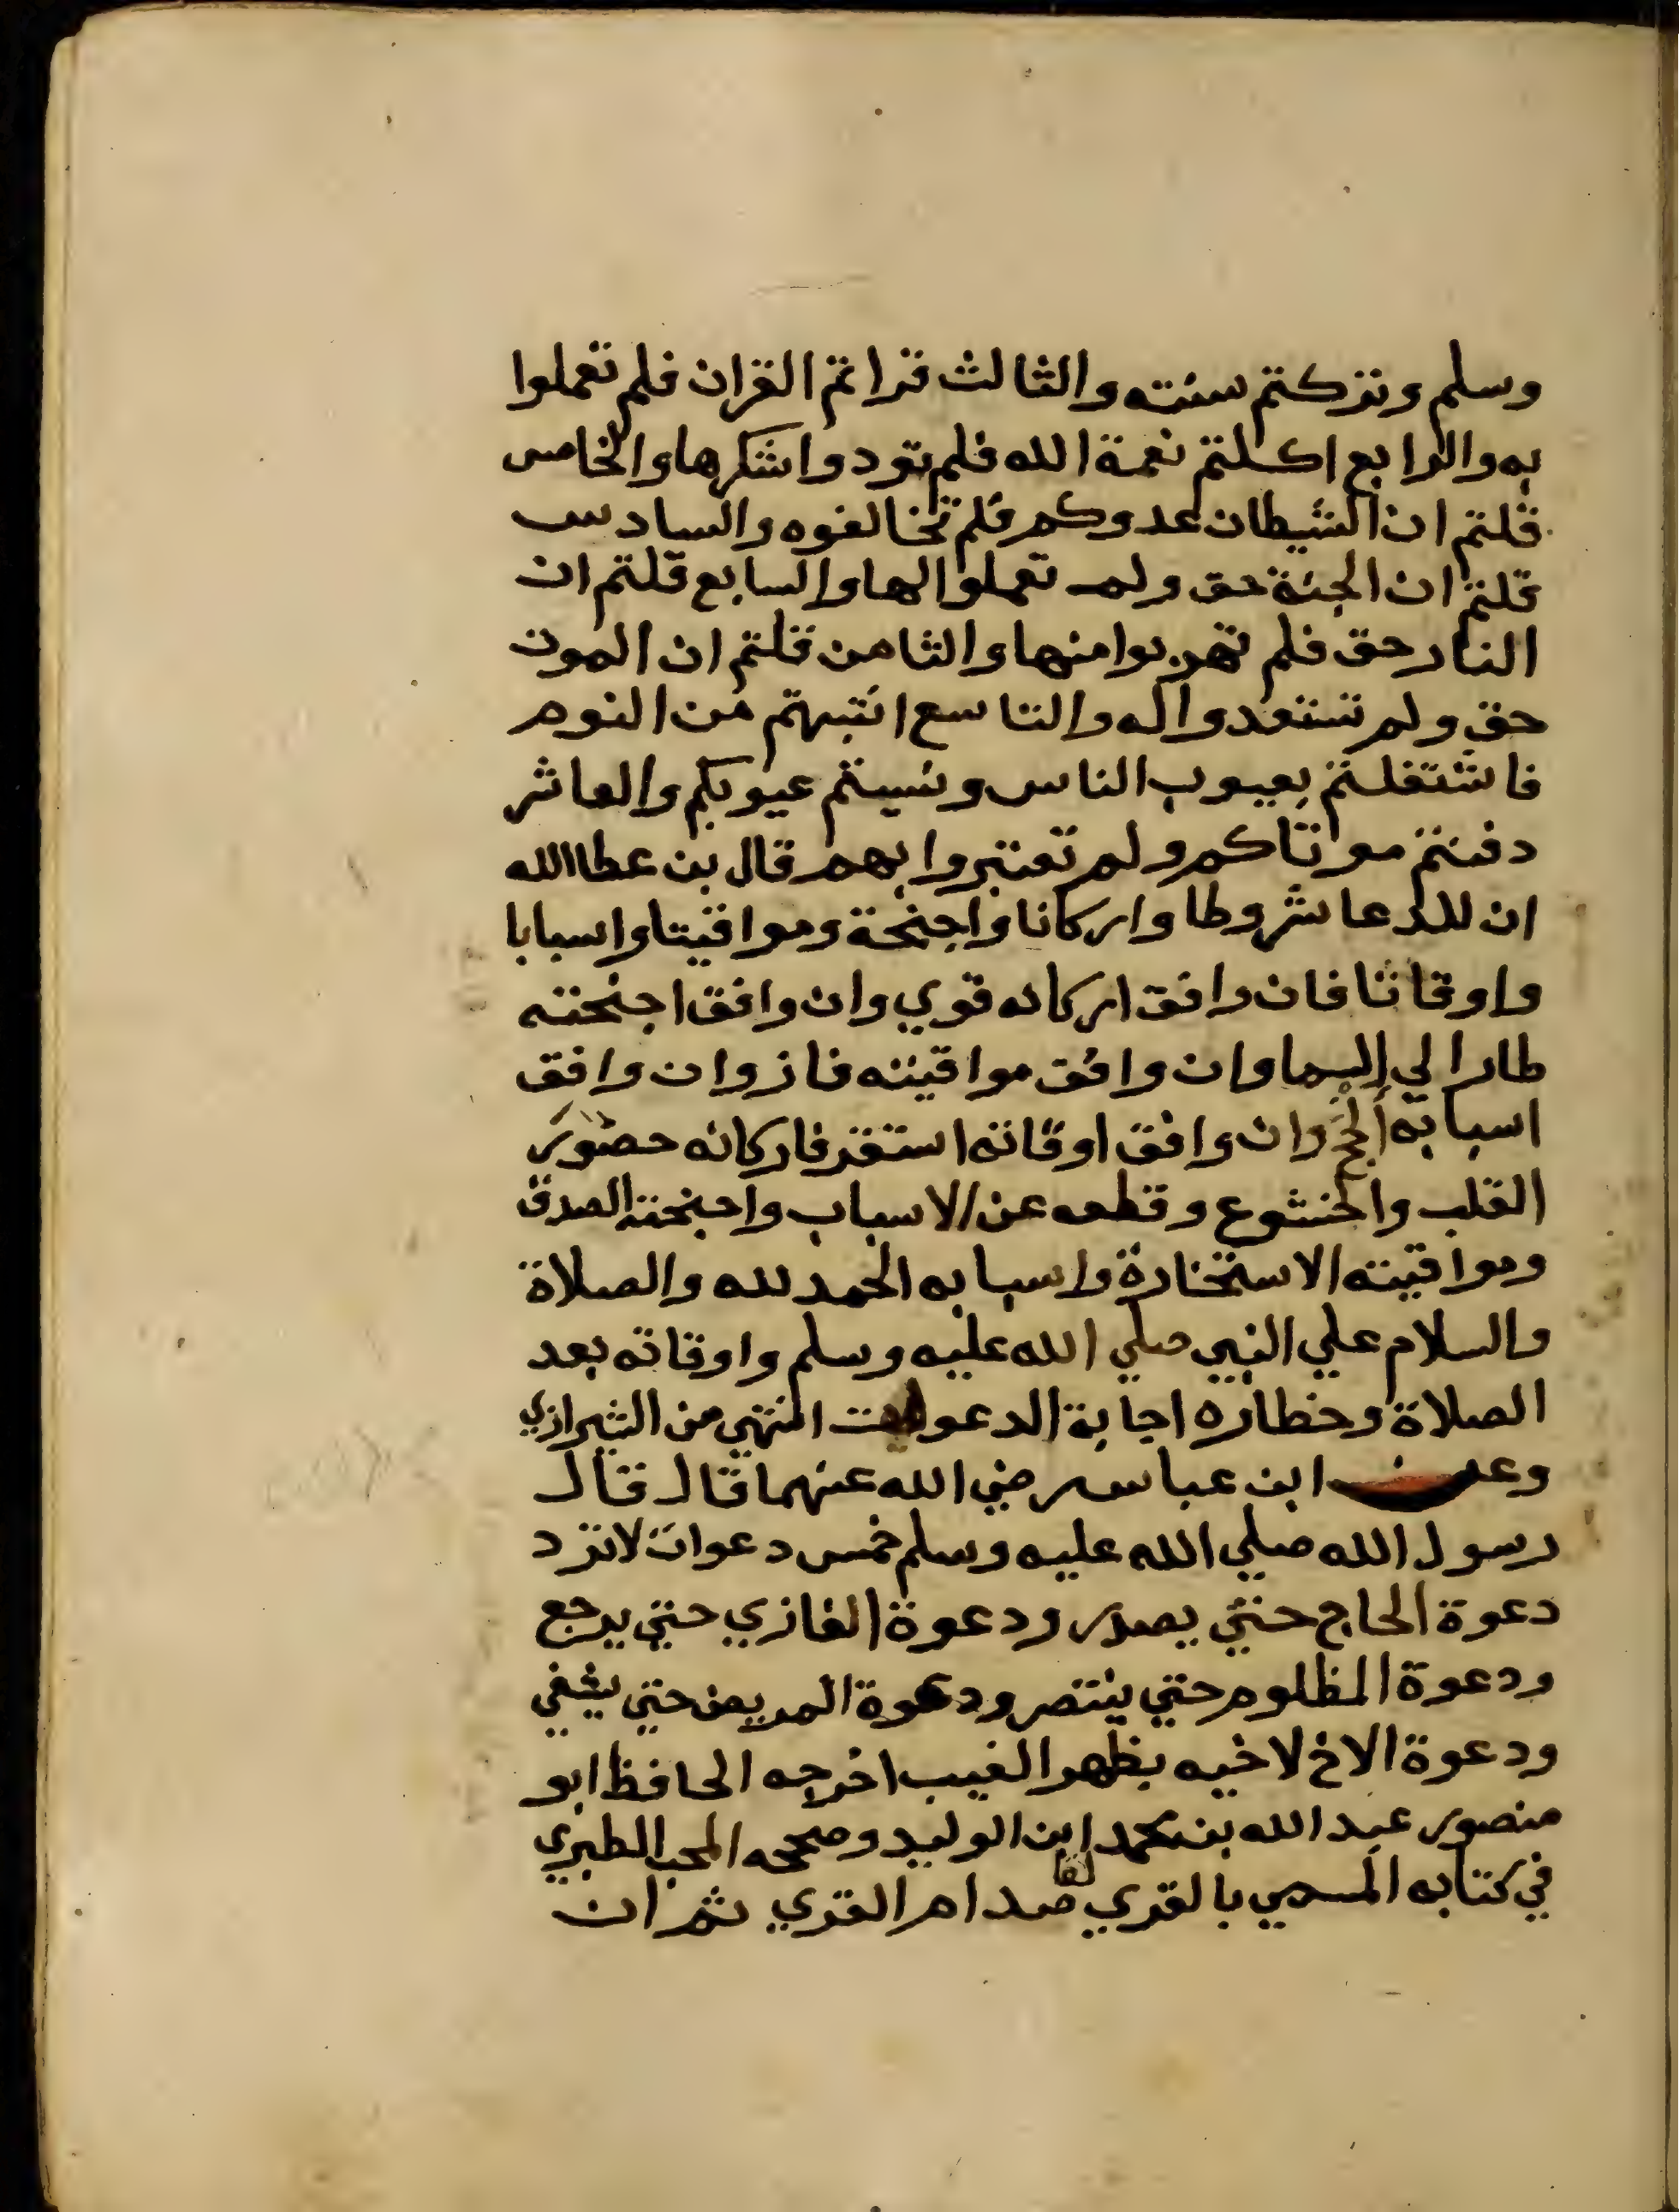 وسلم وتركتم سنته والثالث قراتم القران فلم تعملوا
به والرابع اكلتم نعمة الله فلم تودوا شكرها والخامس
قلتم ان الشيطان عدوكم فلم تخالفوه والسادس
قلتم ان الجنة حق ولم تعملوا لها والسابع قلتم ان
النار حق فلم تهربوا منها والثامن قلتم ان الموت
حق ولم تستعدوا له والتاسع انتبهتم من النوم
فاشتغلتم بعيوب الناس ونسيتم عيوبكم والعاشر
دفنتم موتاكم ولم تعتبروا بهم قال بن عطا الله
ان للدعا شروطا واركانا واجنحة ومواقيتا واسبابا
واوقاتا فان وافق اركانه قوي وان وافق اجنحته
طار الي السما وان وافق مواقيته فاز وان وافق
اسبابه انجح وان وافق اوقاته استقر فاركانه حضور
القلب والخشوع وقطعه عن الاسباب واجنحته الصدق
ومواقيته الاستخارة واسبابه الحمد لله والصلاة
والسلام علي النبي صلي الله عليه وسلم واوقاته بعد
الصلاة وخطاره اجابة الدعوات انتهي من الشيرازي
وعن ابن عباس رضي الله عنهما قال قال
رسول الله صلي الله عليه وسلم خمس دعوات لا ترد
دعوة الحاج حتي يصدر ودعوة الغازي حتي يرجع
ودعوة المظلوم حتي ينتصر ودعوة المريض حتي يشفي
ودعوة الاخ لاخيه بظهر الغيب اخرجه الحافظ ابو
منصور عبد الله بن محمد ابن الوليد وصححه المحب الطبري
في كتابه المسمي بالقري لقاصد ام القري ثم ان